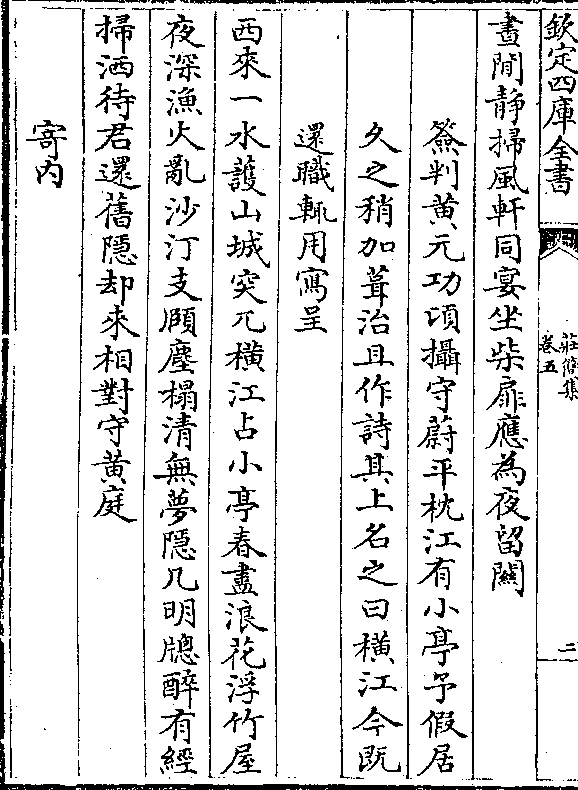 欽定四庫全書
莊簡集
卷五
二
晝閒静掃風軒同宴坐柴扉應為夜留關
簽判黄元功頃攝守蔚平枕江有小亭予假居
久之稍加葺治且作詩其上名之曰横江今既
還職輒用寫呈
西來一水護山城突兀横江占小亭春盡浪花浮竹屋
夜深漁火亂沙汀支頤塵榻清無夢隠几明牕醉有經
掃洒待君還舊隠却來相對守黄庭
寄内